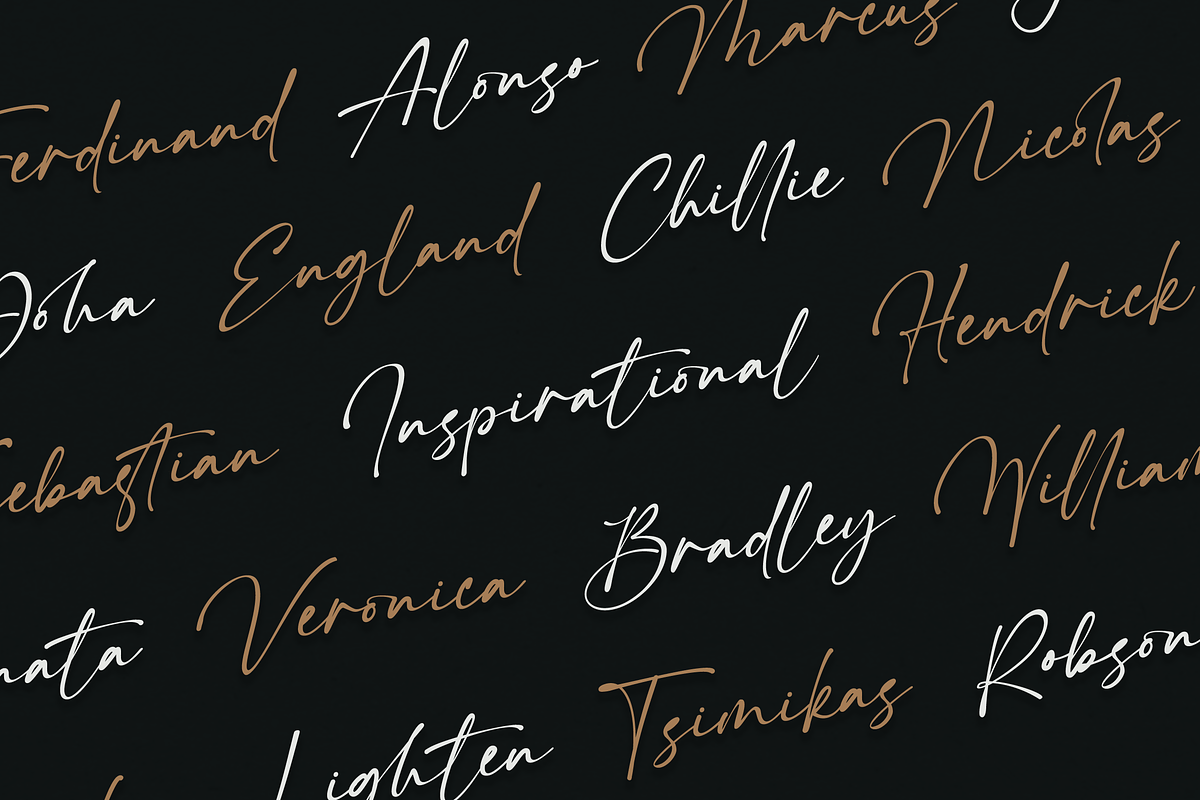 Ferdinand Alonso Marcus
England Chillie Nicolas
Inspirational Hendrick
Sebastian Bradley William
Veronica Robson
Lighten Tsimikas